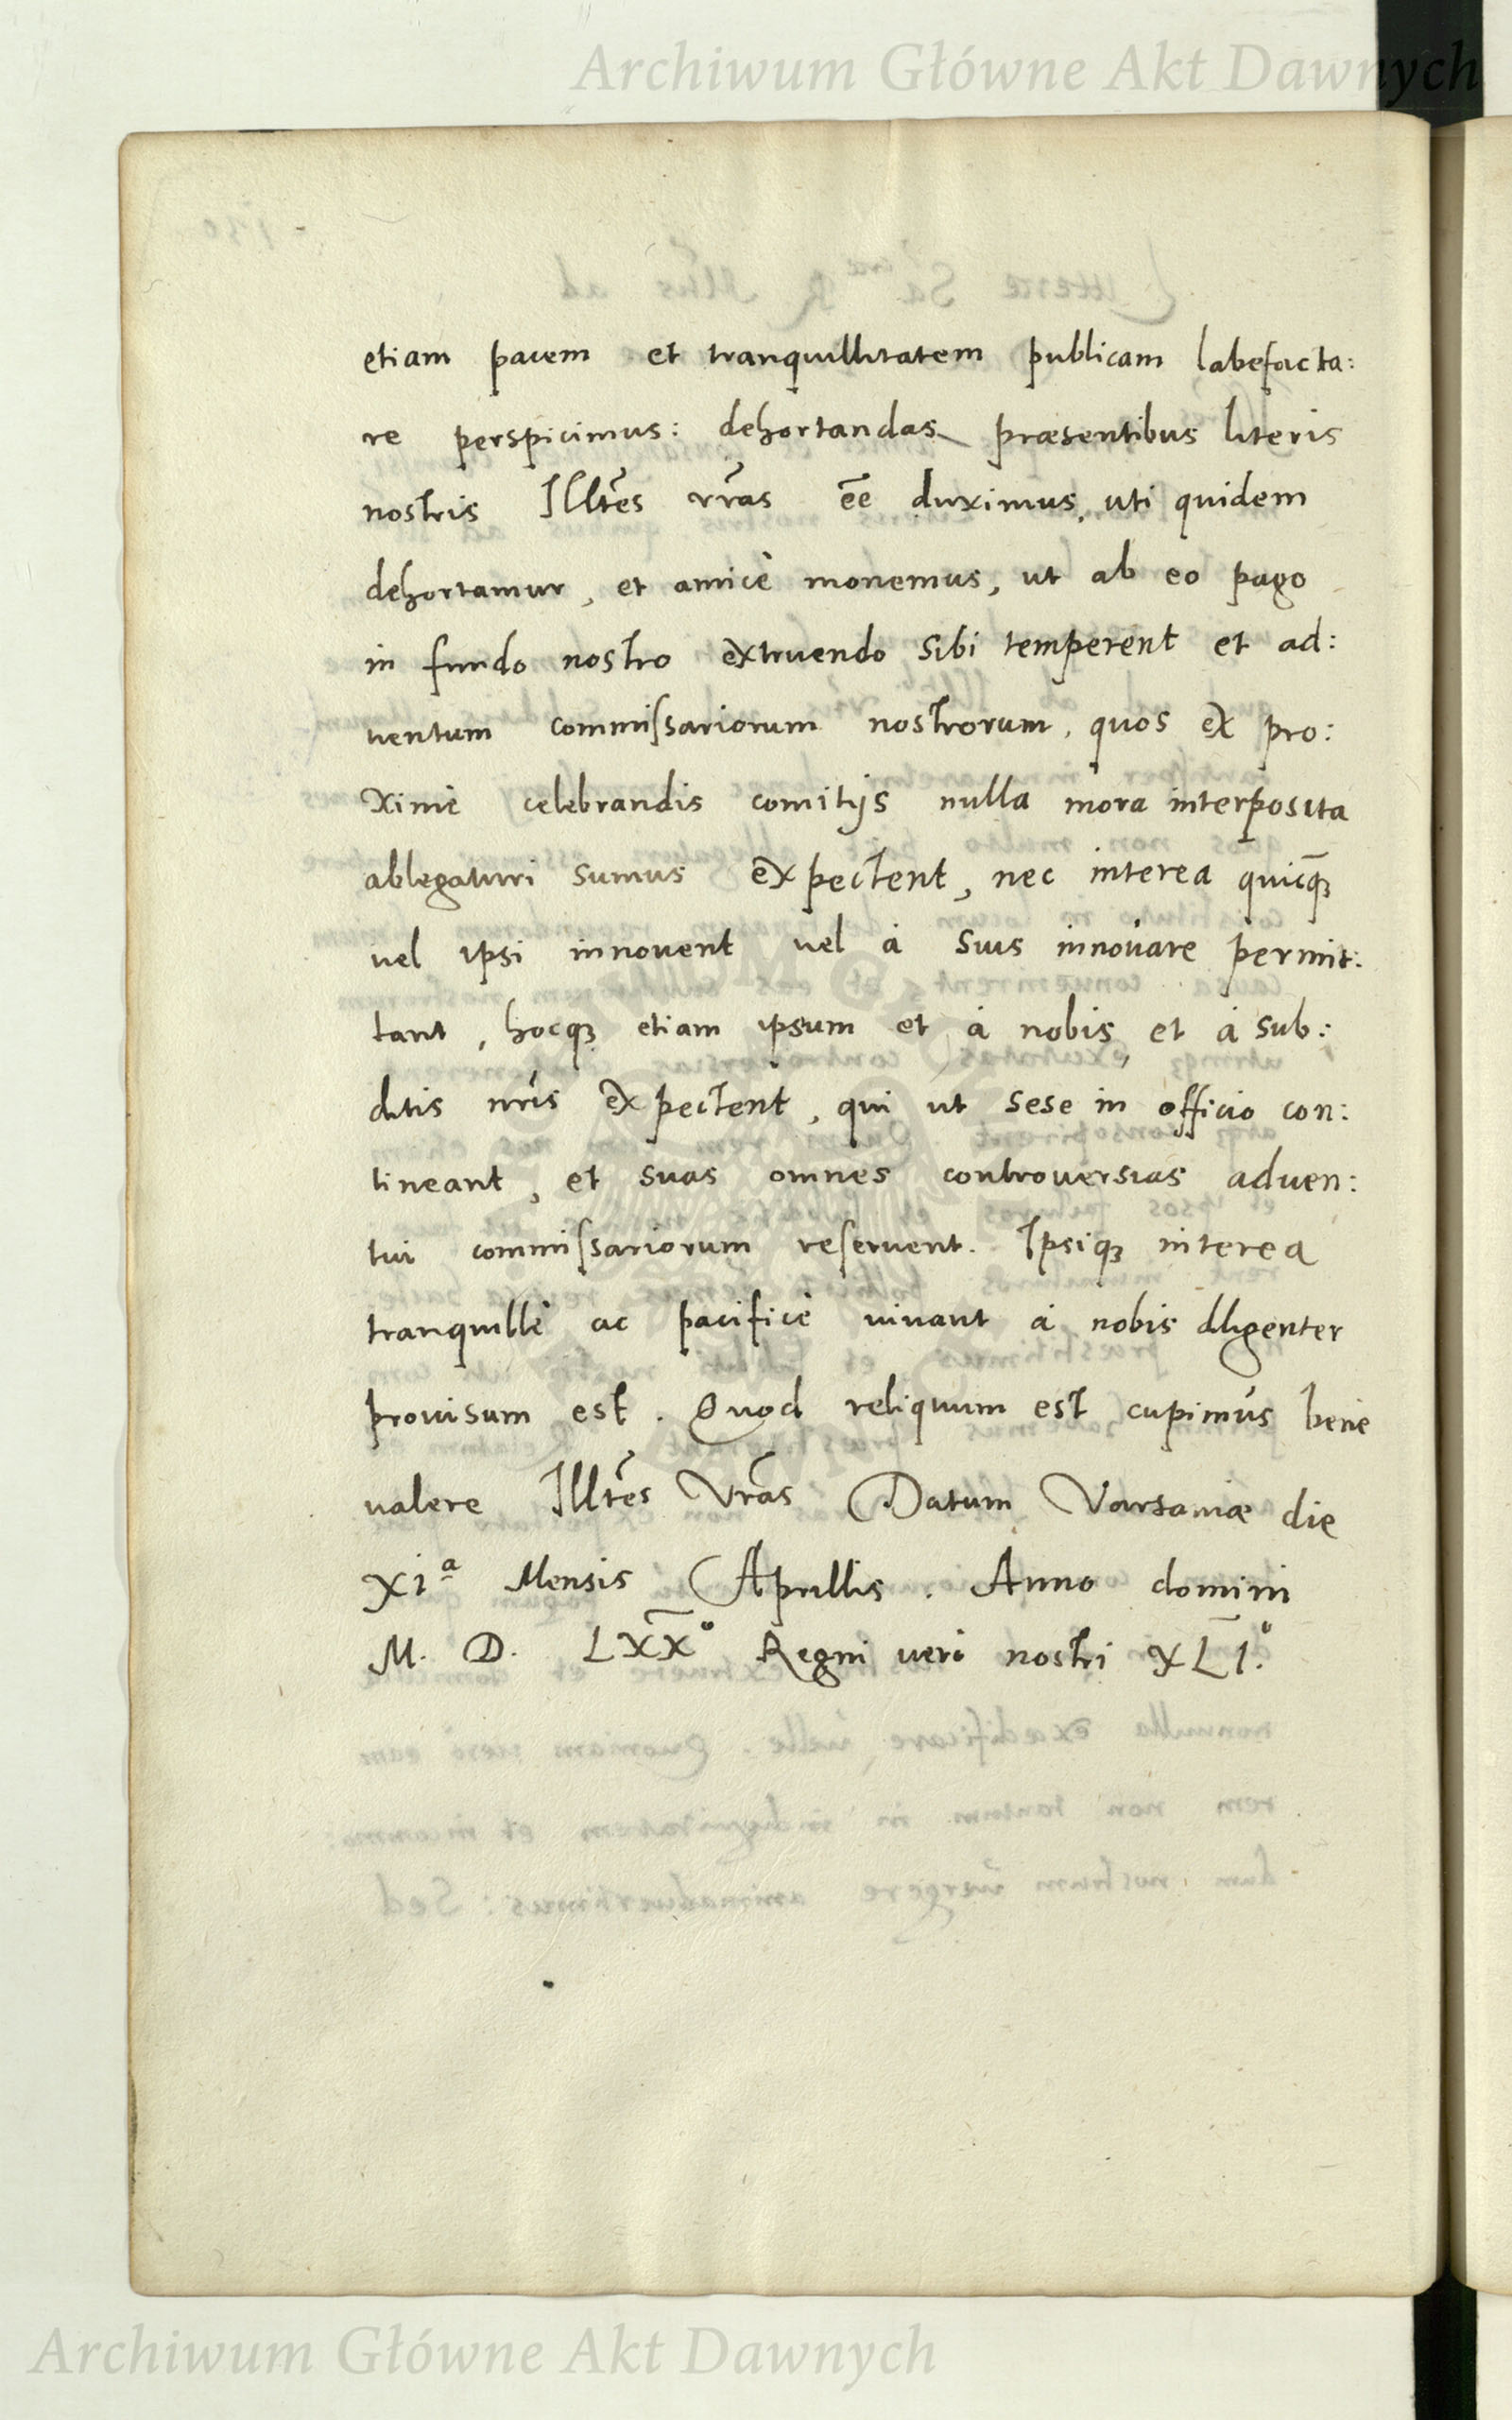 Archiwum Główne Akt Dawnych
etiam pacem et tranquillitatem publicam labefacta:
re perspicimus: dehortandas præsentibus literis
nostris Illtēs vrās eē duximus, uti quidem
dehortamur, et amicè monemus, ut ab eo pago
in fundo nostro extruendo sibi temperent et ad:
uentum commissariorum nostrorum, quos ex pro:
ximè celebrandis comitijs nulla mora interposita
ablegaturi sumus expectent, nec interea quicq̄ȝ
uel ipsi innouent uel à suis innouare permit:
tant, hocqȝ etiam ipsum et à nobis, et à sub:
ditis nrīs expectent, qui ut sese in officio con:
tineant, et suas omnes controuersias aduen:
tui commissariorum reseruent. Ipsiqȝ interea
tranquillè ac pacificè uiuant à nobis diligenter
prouisum est. Quod reliquum est cupimus bene
ualere Illtēs Vrās Datum Varsauiæ die
XIª Mensis Aprillis. Anno domini
M. D. LXX° Regni uerò nostri XLI.°
Archiwum Główne Akt Dawnych